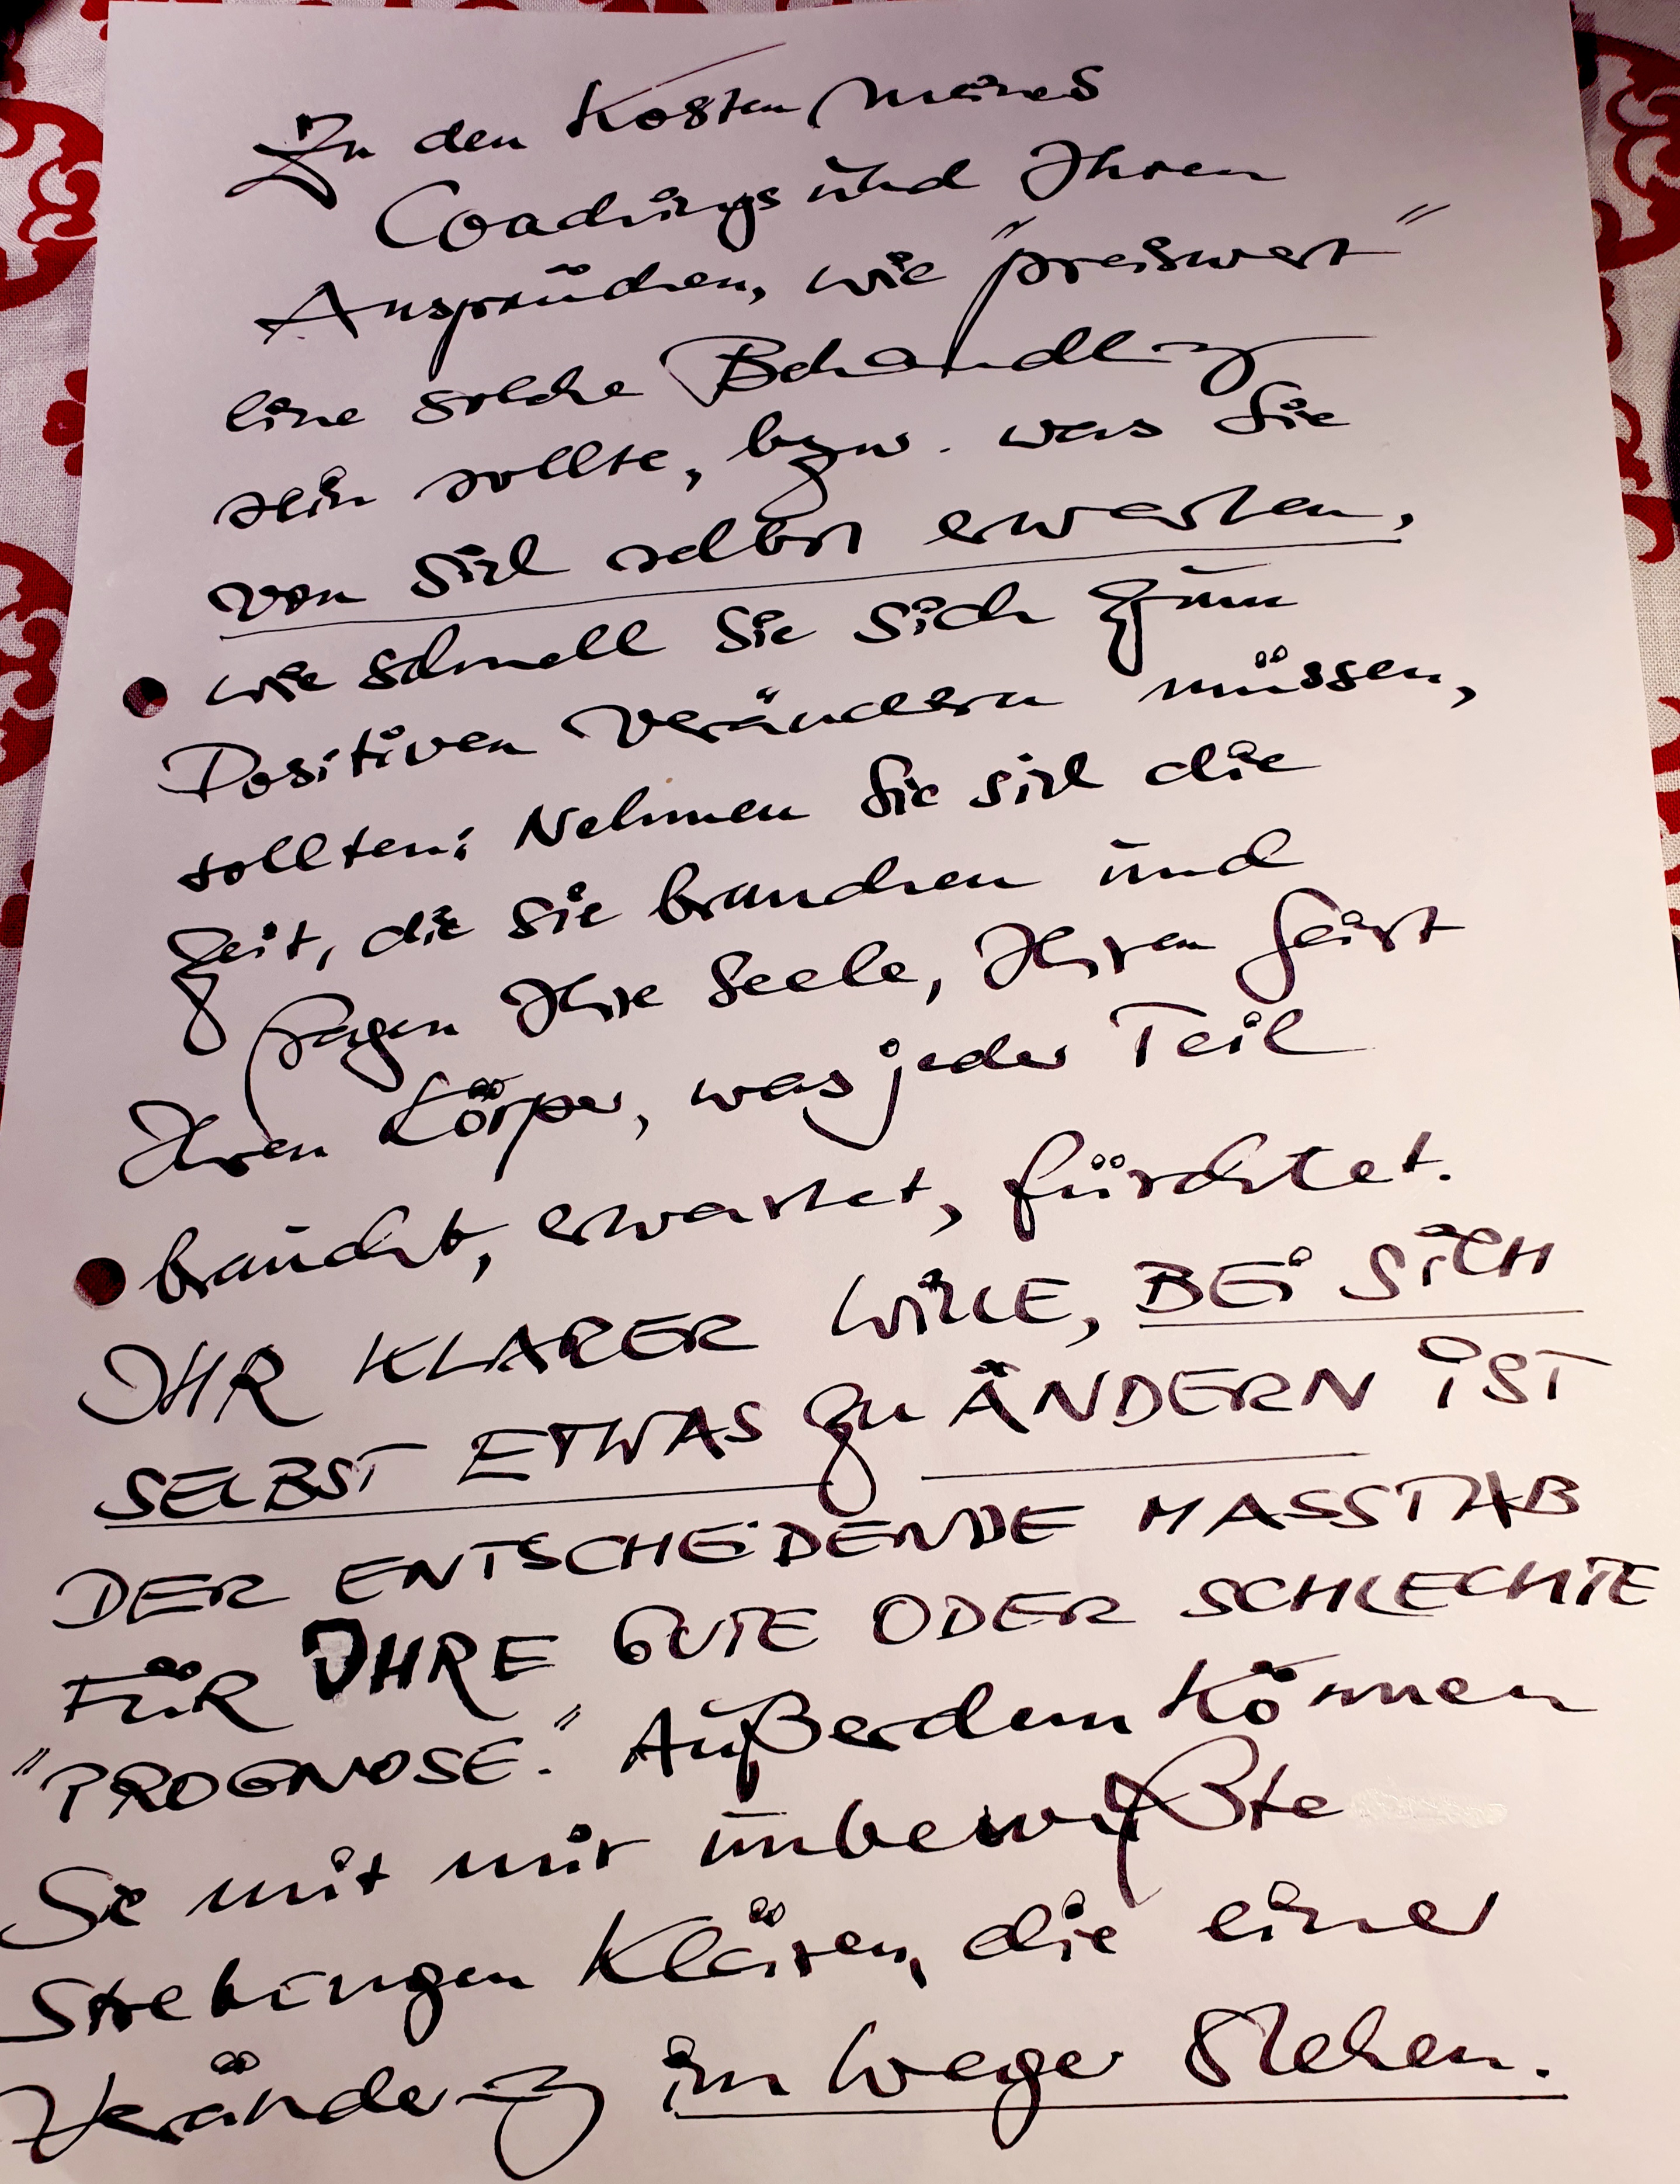 Zu den Kosten meines
Coachings und Ihren
Ansprüchen, wie "preiswert"
eine solche Behandlung
sein sollte, bzw. was Sie
von sich selbst erwarten,
wie schnell Sie sich zum
Positiven verändern müssen,
sollten: Nehmen Sie sich die
Zeit, die Sie brauchen und
fragen Ihre Seele, Ihren Geist
Ihren Körper, was jeder Teil
braucht, erwartet, fürchtet.
IHR KLARER WILLE, BEI SICH
SELBST ETWAS zu ÄNDERN IST
DER ENTSCHEIDENDE MASSTAB
FÜR IHRE GUTE ODER SCHLECHTE
"PROGNOSE." Außerdem können
Sie mit mir unbewußte
Strebungen klären, die einer
Veränderung im Wege stehen.